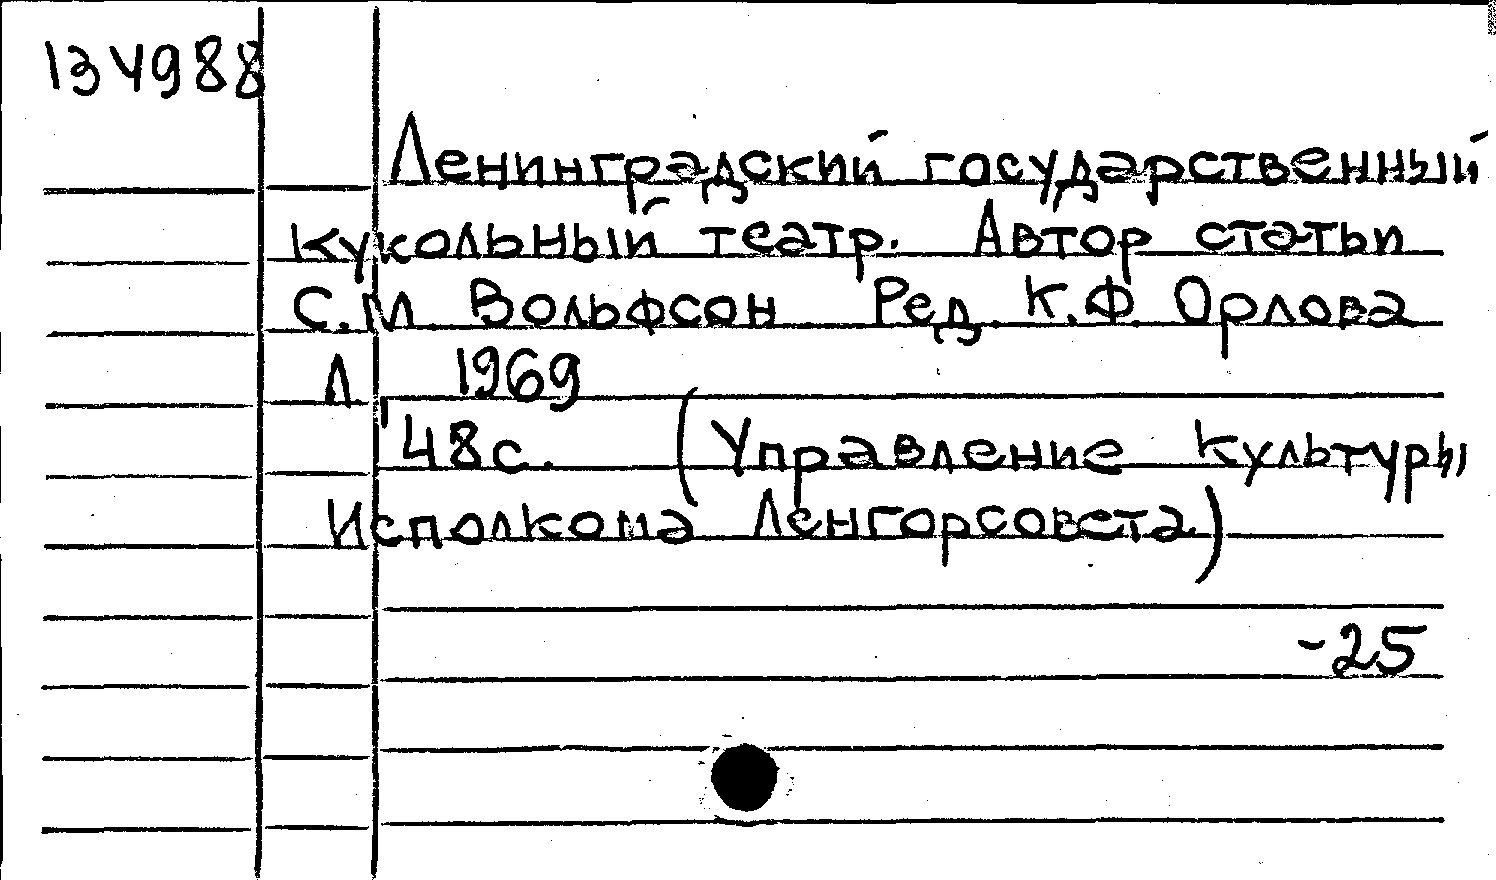 134988
Ленинградский государственный
кукольный театр. Автор статьи
С.М. Вольфсон Ред. К.Ф. Орлова
Л. 1969
48с. (Управление культуры
Исполкома Ленгорсовета)
-25